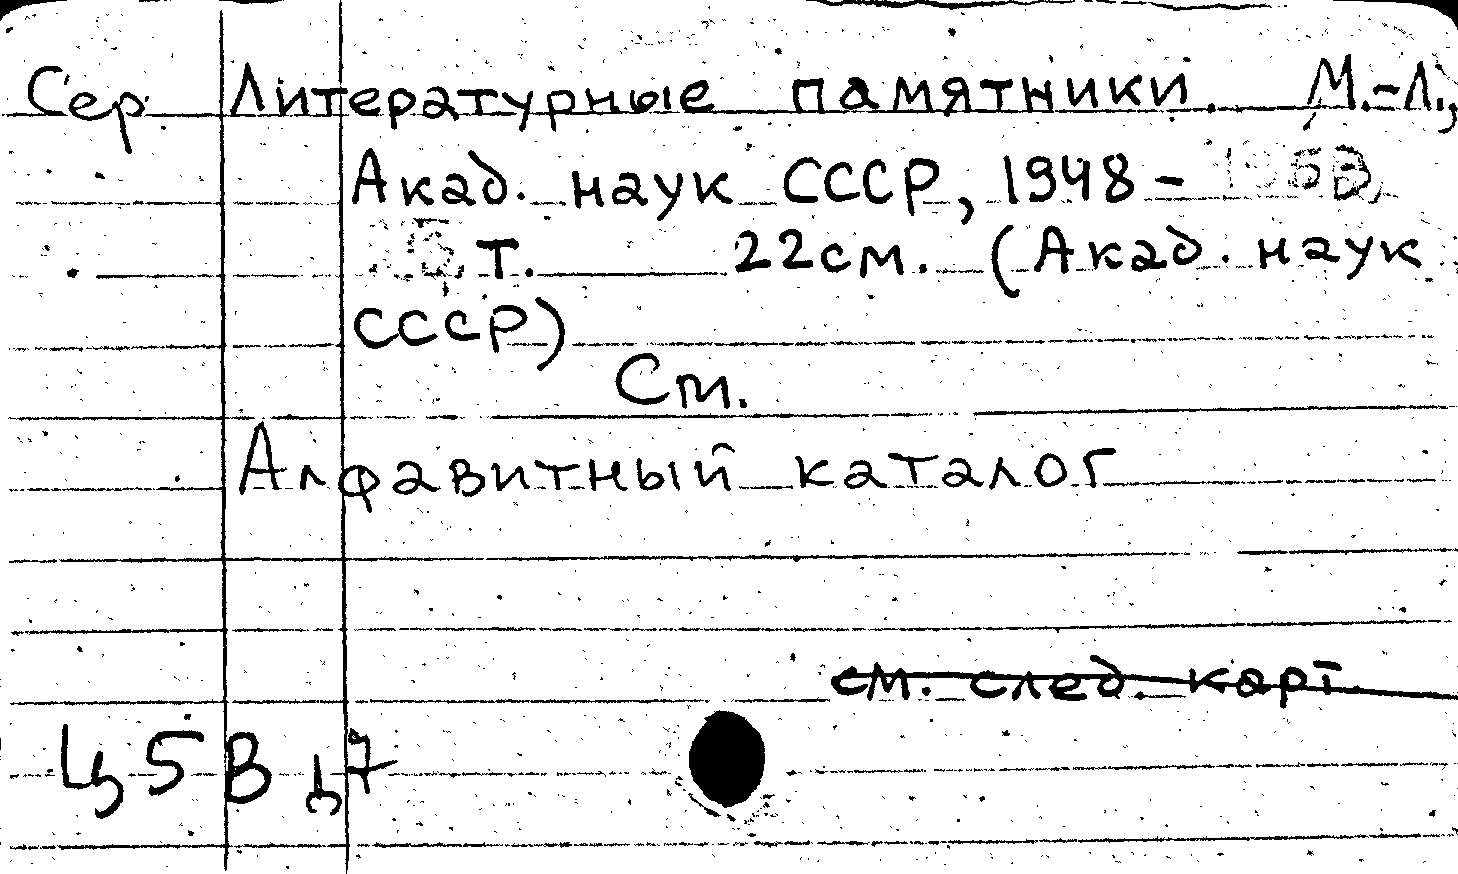 Сер. Литературные памятники. М.-Л.,
Акад. наук СССР, 1948-
т. 22см. (Акад. наук
СССР)
См.
Алфавитный каталог
см. след. карт.
Ц5В